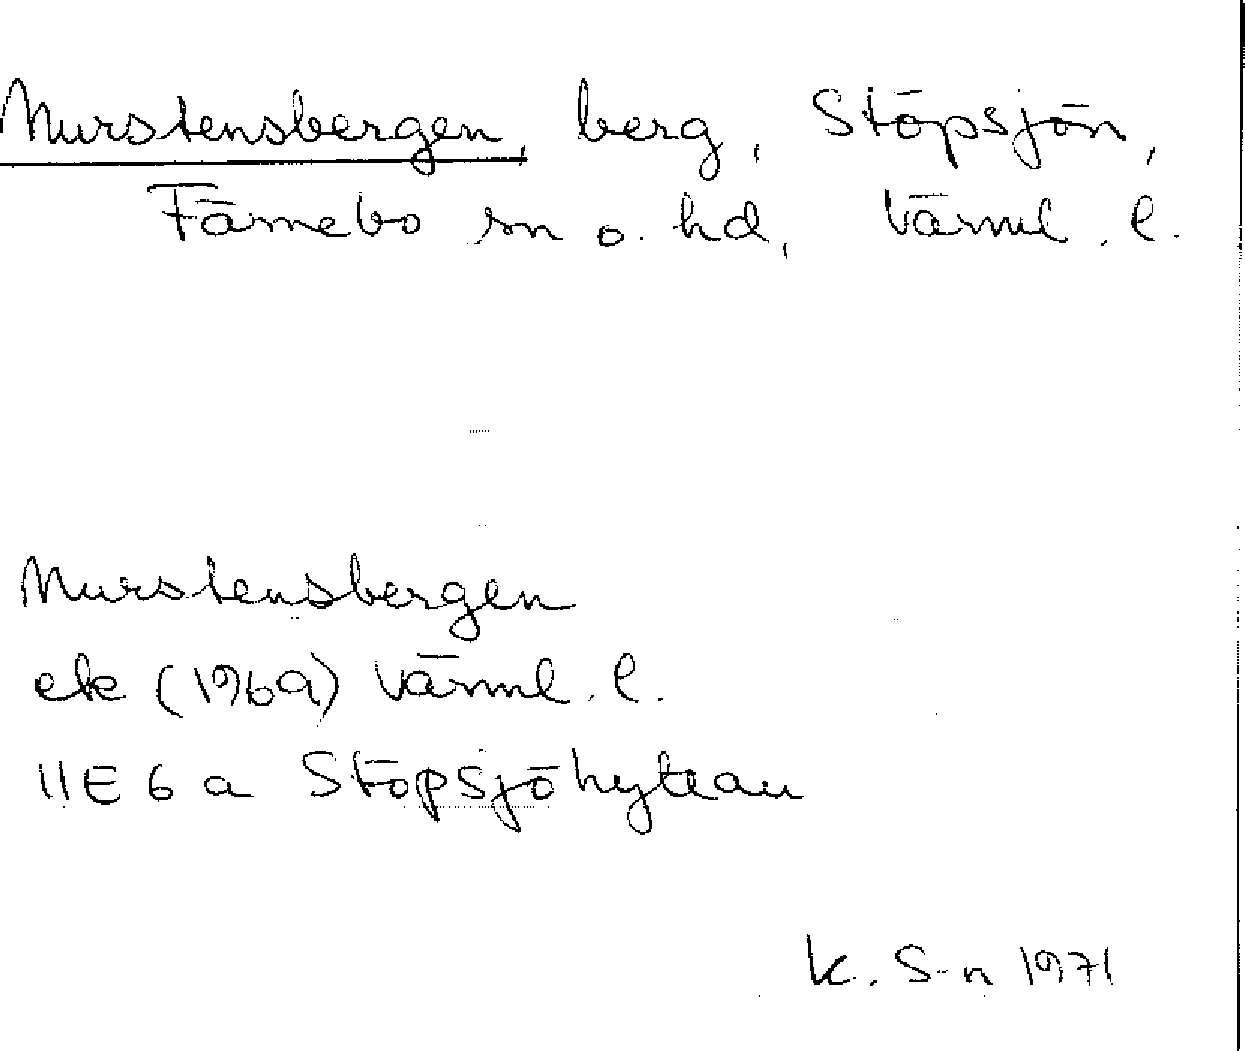 Murstensbergen, berg, Stöpsjön,
Färnebo sn o. hd, Värml. l.
Murstensbergen
ek (1969) Värml. l.
11E 6 a Stöpsjöhyttan
K. S-n 1971